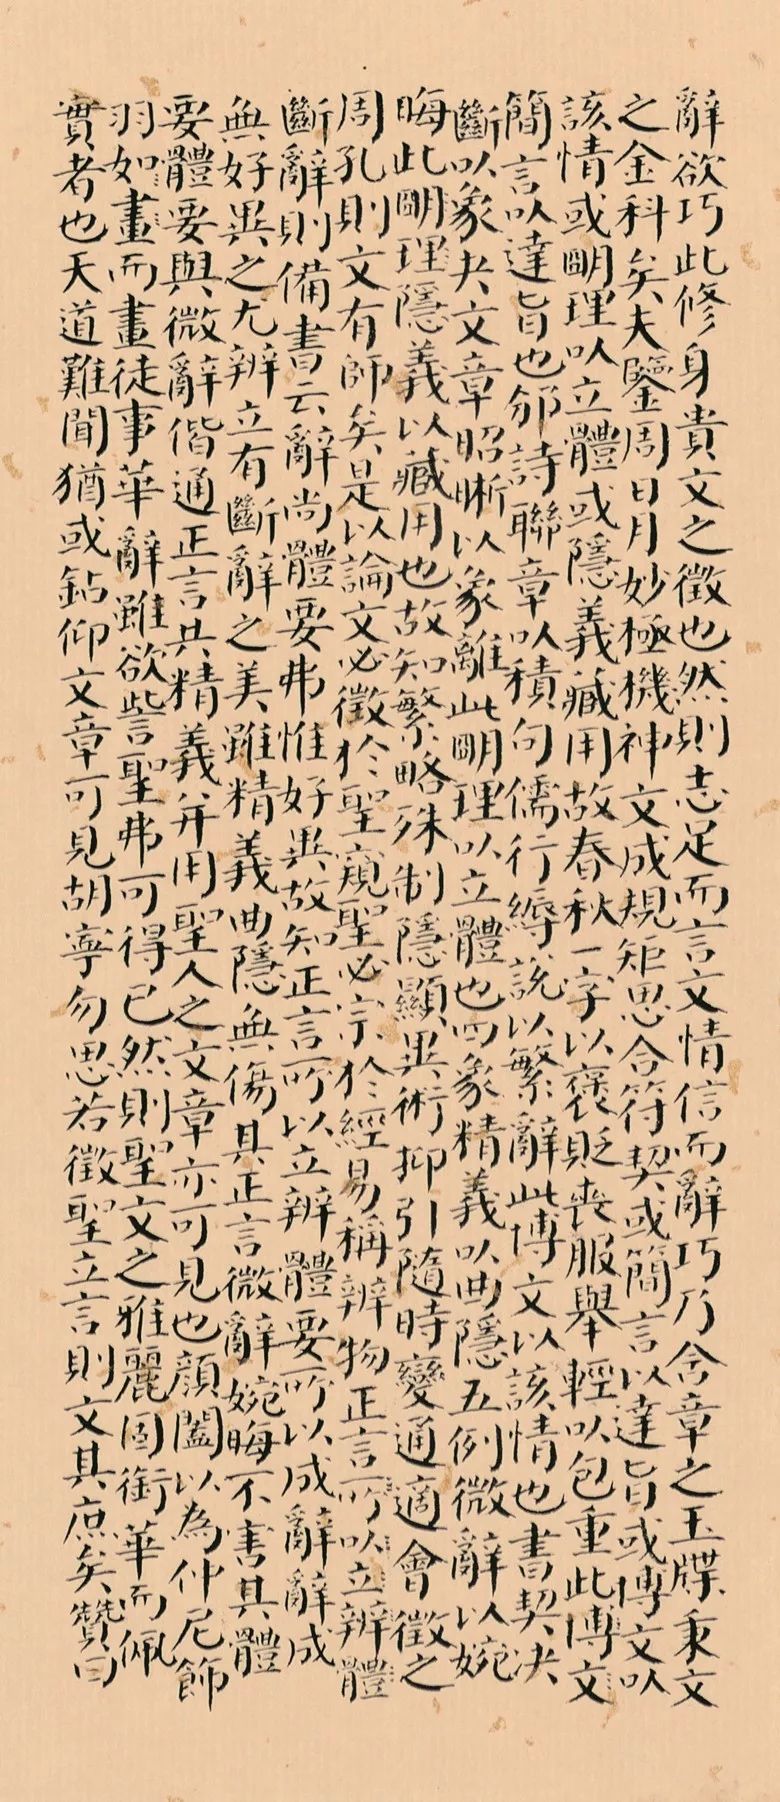 辭欲巧此修身貴文之徵也然則志足而言文情信而辭巧乃含章之玉牒秉文
之金科矣夫鑒周日月妙極機神文成規矩思合符契或簡言以達旨或博文以
該情或明理以立體或隱義藏用故春秋一字以褒貶喪服舉輕以包重此博文
簡言以達旨也邠詩聯章以積句儒行縟說以繁辭此博文以該情也書契決
斷以象夬文章昭晰以象離此明理以立體也四象精義以曲隱五例微辭以婉
晦此明理隱義以藏用也故知繁略殊制隱顯異術抑引隨時變通適會徵之
周孔則文有師矣是以論文必徵於聖窺聖必宗於經易稱辨物正言所以立辨體
斷辭則備書云辭尚體要弗惟好異故知正言所以立辨體要所以成辭辭成
無好異之尤辨立有斷辭之美雖精義曲隱無傷其正言微辭婉晦不害其體
要體要與微辭偕通正言共精義并用聖人之文章亦可見也顏闔以為仲尼飾
羽如畫而畫徒事華辭雖欲訾聖弗可得已然則聖文之雅麗固銜華而佩
實者也天道難聞猶或鉆仰文章可見胡寧勿思若徵聖立言則文其庶矣贊曰